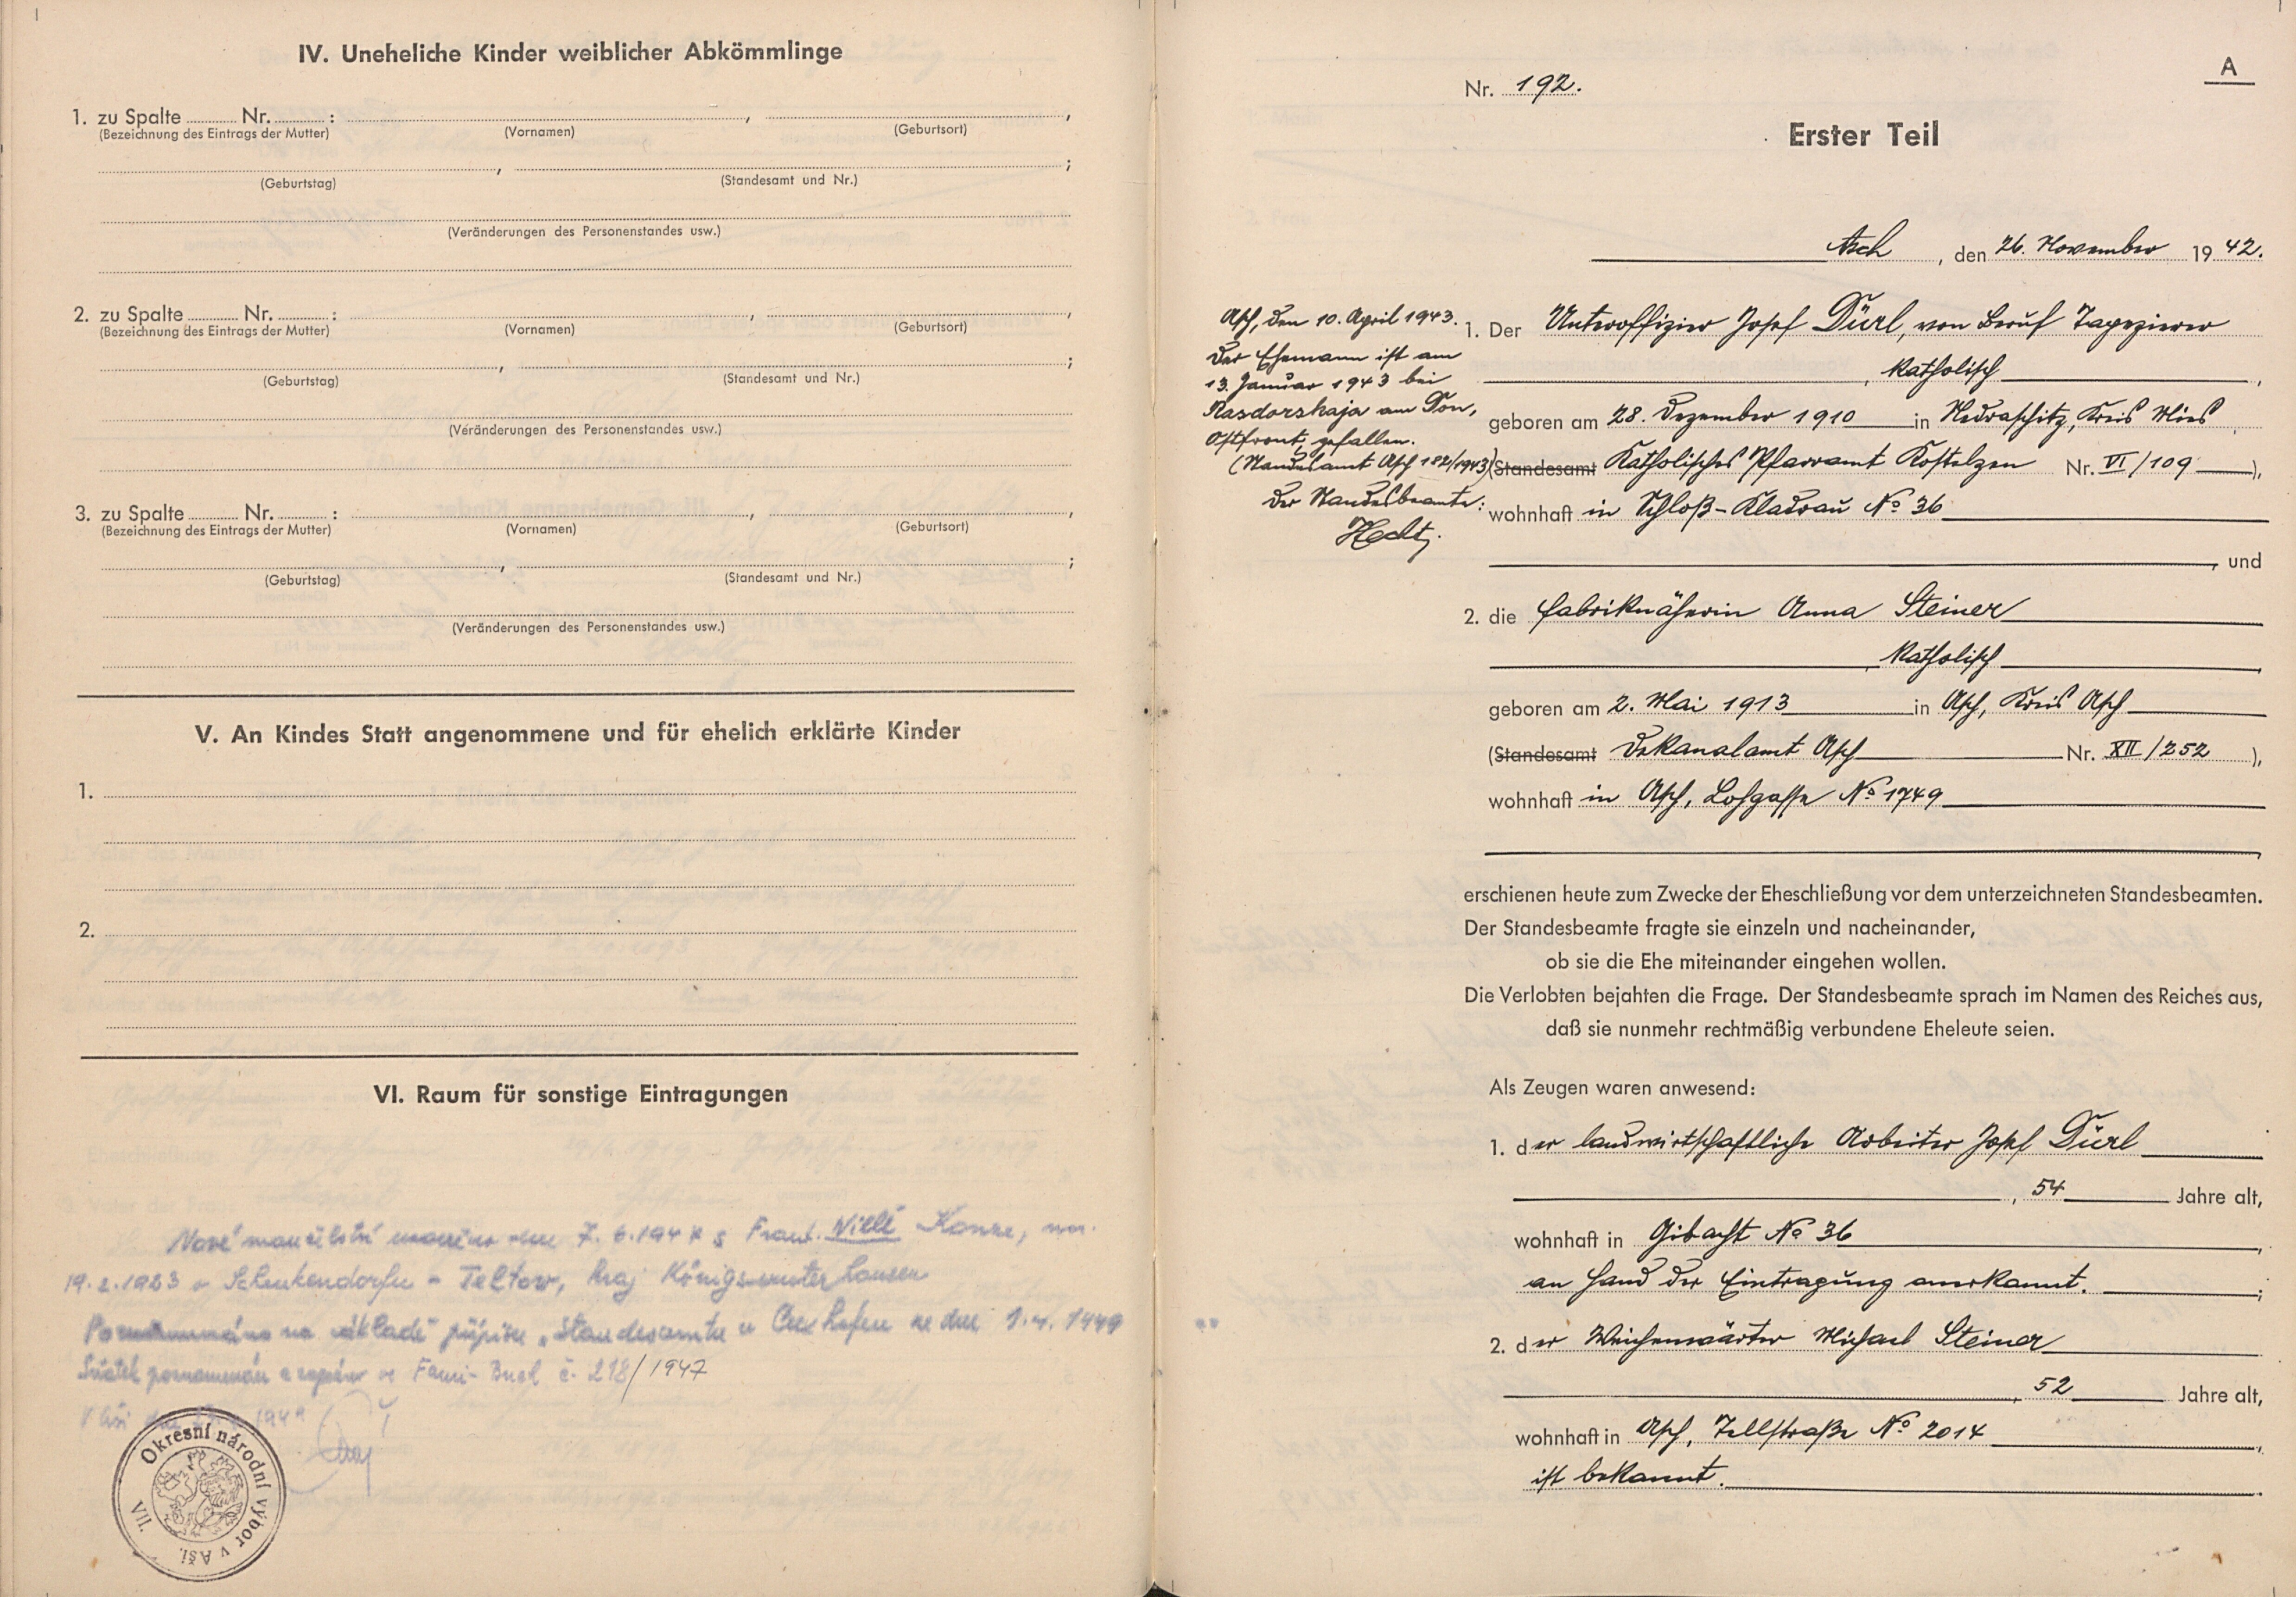 IV. Uneheliche Kinder weiblicher Abkömmlinge
1. zu Spalte Nr. : , ,
(Bezeichnung des Eintrags der Mutter) (Vornamen) (Geburtsort)
, ;
(Geburtstag) (Standesamt und Nr.)
(Veränderungen des Personenstandes usw.)
2. zu Spalte Nr. : , ,
(Bezeichnung des Eintrags der Mutter) (Vornamen) (Geburtsort)
, ;
(Geburtstag) (Standesamt und Nr.)
(Veränderungen des Personenstandes usw.)
3. zu Spalte Nr. : , ,
(Bezeichnung des Eintrags der Mutter) (Vornamen) (Geburtsort)
, ;
(Geburtstag) (Standesamt und Nr.)
(Veränderungen des Personenstandes usw.)
V. An Kindes Statt angenommene und für ehelich erklärte Kinder
1.
2.
VI. Raum für sonstige Eintragungen
Nové manželství dne 7. 6. 1947 s Frant. Willi
19. 2. 1923 v Schenkendorfu - Teltow, kraj Königswusterhausen
na základě přípisu „Standesamtu v ze dne 1. 4. 1949
Sňatek poznamenán a zapsán ve Fami- Buch č. 218/1947
V Aši 1949
Okresní národní výbor v Aši.
VII.
A
Nr. 192.
Erster Teil
Asch, den 26. November 1942.
Asch, den 10. April 1943.
Der Ehemann ist am
13. Januar 1943 bei
Rasdorskaja am Don,
Ostfront, gefallen.
(Standesamt Asch 182/1943)
Der Standesbeamte:
Hecht.
1. Der Unteroffizier Josef Dürl, von Beruf Tapezierer
, katholisch ,
geboren am 28. Dezember 1910 in Nedraschitz, Kreis Mies ,
(Standesamt Katholisches Pfarramt Kostelzen Nr. VI/109 ),
wohnhaft in Schloß-Kladrau No 36
, und
2. die Fabriknäherin Anna Steiner
, katholisch ,
geboren am 2. Mai 1913 in Asch, Kreis Asch
(Standesamt Dekanalamt Asch Nr. XII/252 ),
wohnhaft in Asch, Lohgasse No 1749
,
erschienen heute zum Zwecke der Eheschließung vor dem unterzeichneten Standesbeamten.
Der Standesbeamte fragte sie einzeln und nacheinander,
ob sie die Ehe miteinander eingehen wollen.
Die Verlobten bejahten die Frage. Der Standesbeamte sprach im Namen des Reiches aus,
daß sie nunmehr rechtmäßig verbundene Eheleute seien.
Als Zeugen waren anwesend:
1. der landwirtschaftliche Arbeiter Josef Dürl
, 54 Jahre alt,
wohnhaft in Gibacht No 36 ,
an Hand der Eintragung anerkannt. ;
2. der Weichenwärter Michael Steiner
, 52 Jahre alt,
wohnhaft in Asch, Tellstraße No 2014 ,
ist bekannt.